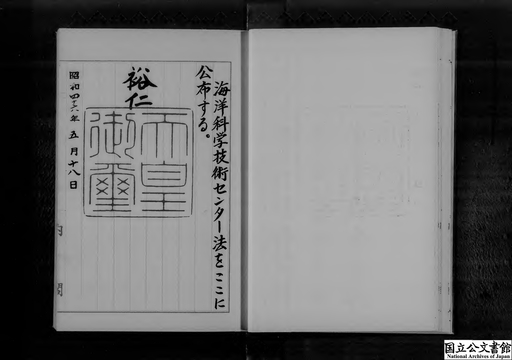 海洋科学技術センター法をここに
公布する。
裕仁
天皇
御璽
昭和四十六年五月十八日
国立公文書館
National Archives of Japan